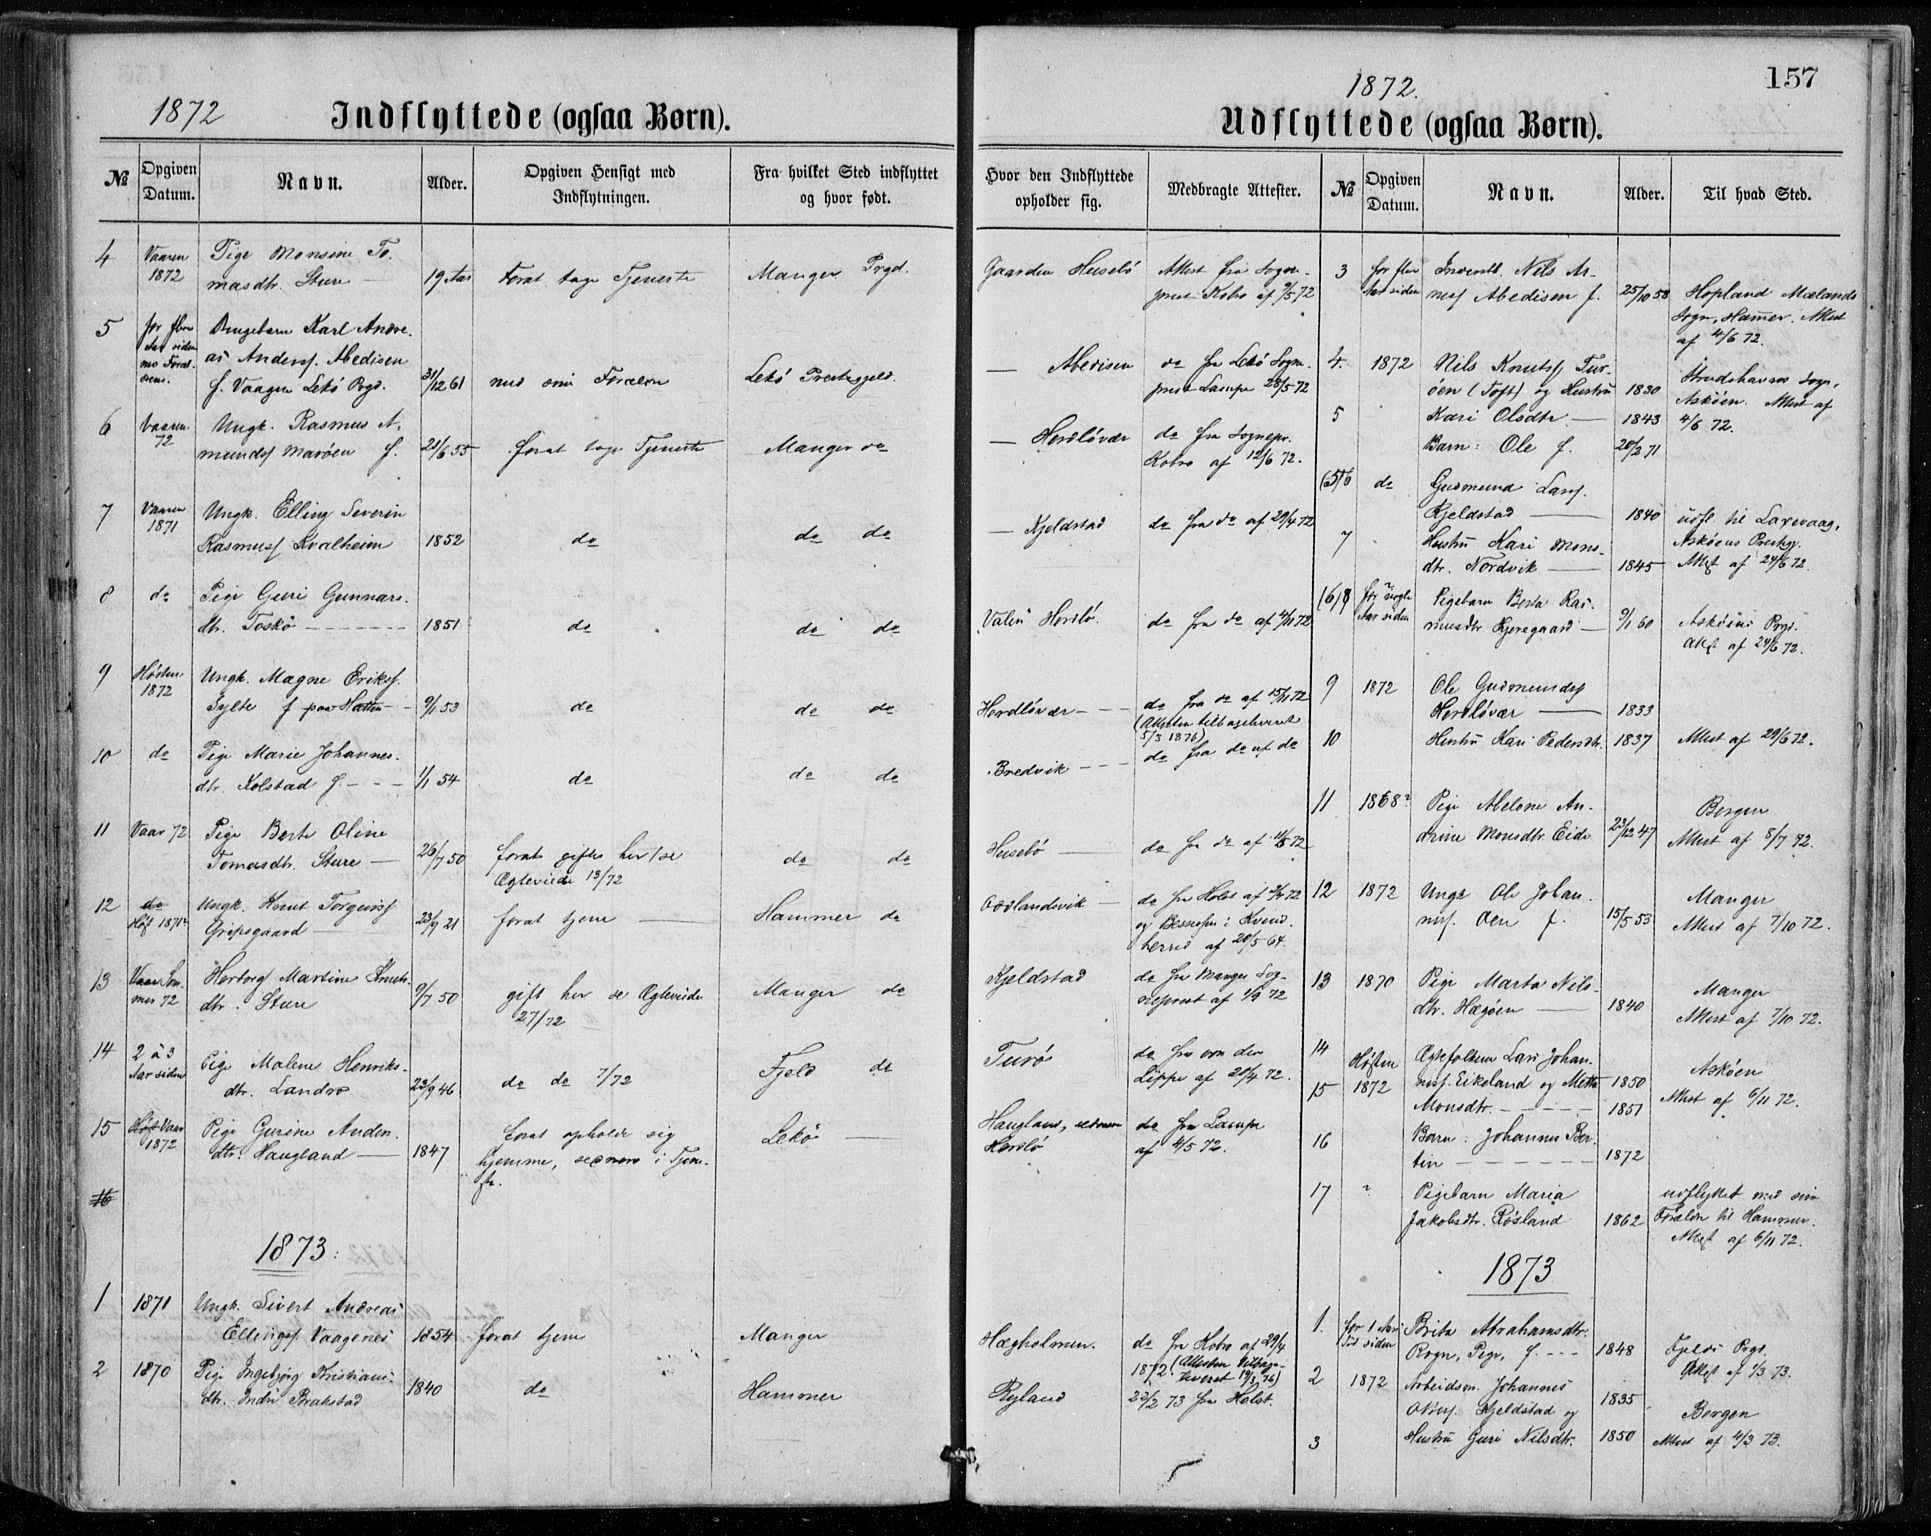 1872
Indflyttede (ogsaa Børn).
№
Opgiven Datum.
Navn.
Alder.
Opgiven Hensigt med Indflytningen.
Fra hvilket Sted indflyttet og hvor født.
4 Vaaren Pige Monsine To-
1872 masdtr. Sture — 19 Aar Forat tage Tjeneste Manger Prgd.
5 for flere Drengebarn Karl Andre-
Aar siden as Anderss. Abedisen
f. Vaagen Lekö Prgd. 31/12 61 med sine Forældre Lekö Prestegjeld.
6 Vaaren Ungk. Rasmus A-
72 munds. Marøen f. 21/6 55 forat tage Tjeneste Manger do
7 Vaaren Ungk. Elling Severin
1871 Rasmuss. Kvalheim 1852 do do do
8 do Pige Guri Gunnars-
dtr. Toskö — 1851 do do do
9 Høsten Ungk. Magne Eriks.
1872 Sylte f. paa Hatten 9/1 53 do do do
10 do Pige Marie Johannes-
dtr. Kolstad f. 1/1 54 do do do
11 Vaar 72 Pige Berte Oline
Tomasdtr. Sture — 26/7 50 forat giftes her/se do do
Ægteviede 13/72
12 do Ungk. Knut Torgeirs.
Høst 1871? Gripsgaard 23/9 21 forat tjene — Hammer do
13 Vaar Som- Herborg Martine Knuts-
mer 72 dtr. Sture 9/7 50 gift her se Ægteviede Manger do
27/72
14 2 à 3 Pige Malene Henriks-
Aar siden dtr. Landro 23/9 46 do do 7/72 Fjeld do
15 Høst Vaar Pige Gurine Anders-
1872 dtr. Haugland — 1847 forat opholde sig Lekö —
hjemme, senere i Tjene-
ste.
16
1873.
1 1871 Ungk. Sivert Andreas
Ellings. Vaagenes 1854 forat tjene Manger
2 1870 Pige Ingebjörg Kristians-
dtr. Indre Brakstad 1840 do Hammer
157
1872.
Udflyttede (ogsaa Børn).
Hvor den Indflyttede opholder sig.
Medbragte Attester.
№
Opgiven Datum.
Navn.
Alder.
Til hvad Sted.
Gaarden Husebö Attest fra Sogne-
prest Kobro af 9/5 72
— Abedisen do fra Lekö Sogne-
prest Lampe 28/5 72
— Herdlövær do fra Sognepr.
Kobro af 12/6 72.
— Kjeldstad do fra do af 29/4 72
Valen Herdlö. do fra do af 4/11 72
Herdlövær — do fra do af 15/11 72
(Attesten tilbageleveret
5/3 1876)
Bredvik — do fra do af do
Husebö — do fra do af 11/5 72
Oddlandsvik — do fra Holst af 3/4 72
og Bessesen i Kvind-
herred af 20/5 64.
Kjeldstad do fra Manger Sog-
neprest af 1/9 72
Turö do fra von der
Lippe af 21/4 72.
Haugland, senere do fra Lampe
Herdlö af 4/5 72.
Hægholmen. do fra Kobro af 29/4
1872 (Attesten tilbage-
leveret 19/3 76)
Ryland 22/2 73 fra Holst.
3 for flere Nils Ar-
Aar siden ness. Abedisen f. 25/10 58 Hopland Mælands
Sogn, Hamer. Attest
af 4/6 72.
4. 1872 Nils Knuts. Tur-
öen (Toft) og Hustru 1830 Strudshavns Sogn,
5 Kari Olsdtr. — 1843 Askøen. Attest af
Barn: Ole f. 20/2 71 4/6 72.
(5)6 do Gudmund Lars.
Kjeldstad — 1840 udfl. til Laxevaag,
7 Hustru Kari Mons- Askøens Prestgj.
dtr. Nordvik — 1845 Attest af 24/6 72.
(6)8 for nogle Pigebarn Berta Ras-
Aar siden musdtr. Kjeregaard — 9/1 60 Askøens Prgd.
Attest af 24/6 72.
9 1872 Ole Gudmunds.
Herdlövær — 1833
10 Hustru Kari Pedersdtr. 1837 Attest af 29/6 72.
11 1868? Pige Abelone An-
drine Monsdtr. Eide 23/12 47 Bergen
Attest af 8/7 72.
12 1872 Ungk. Ole Johan-
ness. Oen f. 15/5 53 Manger
Attest af 7/10 72.
13 1870 Pige Marta Nils-
dtr. Hægøen — 1840 Manger
Attest af 7/10 72.
14 Høsten Ægtefolkene Lars Johan-
15 1872 ness. Eikeland og Mette 1850 Askøen
Monsdtr. — 1851 Attest af 6/11 72.
16 Barn: Johannes Ber-
tin — 1872
17 ? Pigebarn Maria udflyttet med sine
Jakobsdtr. Røsland 1862 Forældre til Hammer.
Attest af 6/11 72.
1873
1. for 1 Aars Brita Abrahamsdtr.
Tid siden Rogn, Pige, f. — 1848 Fjelds Prgd.
Attest af 1/3 73.
2 1872 Arbeidsm. Johannes
Kjeldstad og 1835 Bergen
3 Hustru Guri Nilsdtr. 1850 Attest af 4/3 73.